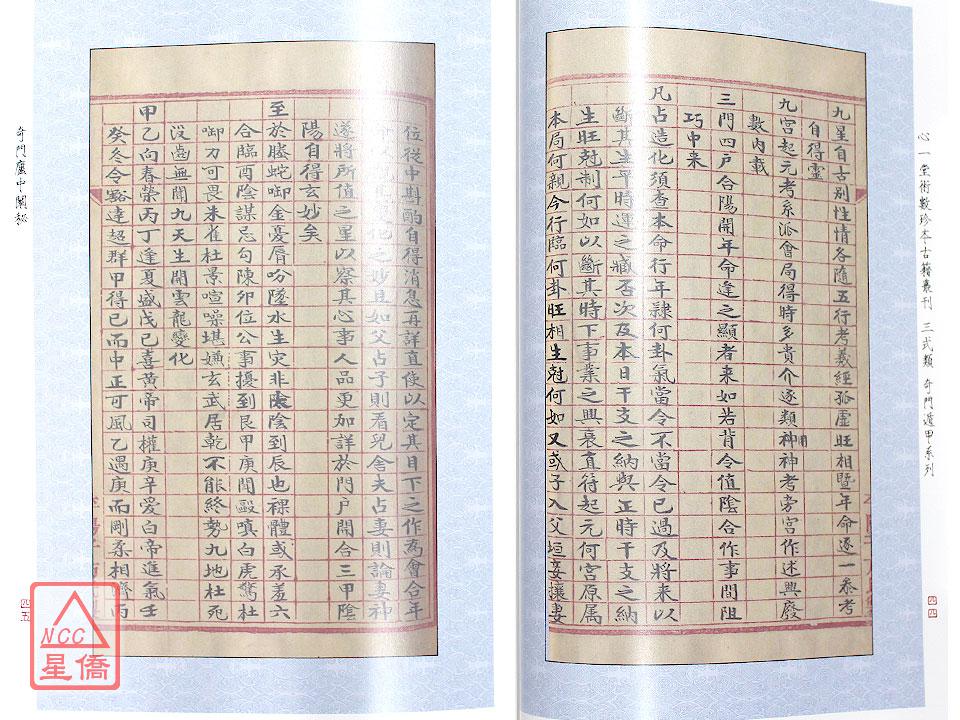 心一堂術數珍本古籍叢刊 三式類 奇門遁甲系列
九星自古別性情各隨五行考義經孤虛旺相暨年命逐一叅考
自得靈
九宮起元考系派會局得時多貴介逐類神用神考旁宮作述興廢
數內載
三門四户合陽開年命逢之顯者来如若背令值陰合作事間阻
巧中来
凡占造化須查本命行年隸何卦氣當令不當令已過及將来以
斷其生平時運之臧否次及本日干支之納與正時干支之納
生旺尅制何如以斷其時下事業之興衰直符起元何宮原属
本局何親今行臨何卦旺相生尅何如又或子入父垣妾攘妻
四四
位從中斟酌自得消息再詳直使以定其目下之作為會合年
之妙且如父占子則看兒舍夫占妻則論妻神
遂將所值之星以察其心事人品更加詳於門户開合三甲陰
陽自得玄妙矣
至於螣蛇啣金憂脣吩墜水生灾非陰到辰也裸體或承羞六
合臨酉陰謀忌勾陳卯位公事擾到艮甲庚間毆嗔白虎驚杜
啣刀可畏朱雀杜景喧噪堪嫌玄武居乾不能終勢九地杜死
没齒無聞九天生開雲龍變化
甲乙向春榮丙丁逢夏盛戊己喜黃帝司權庚辛愛白帝進氣壬
癸冬令豁達超群甲得己而中正可風乙遇庚而剛柔相濟丙
奇門廬中闡秘
四五
NCC
星僑